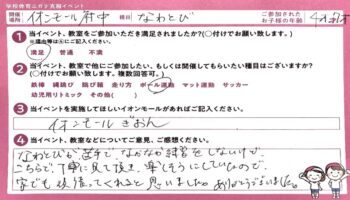 学校体育ニガテ克服イベント
開催場所 イオンモール府中 種目 なわとび ご参加されたお子様の年齢
1 当イベント、教室をご参加いただき満足されましたか?(○付けでお願い致します。)
※理由等は④にご記入ください。
満足 普通 不満
2 当イベント、教室で他に加えてもらいたい、もしくは開催してもらいたい種目はございますか?
(○付けでお願い致します。複数回答可。)
鉄棒 縄跳び 跳び箱 走り方 ボール運動 マット運動 サッカー
幼児用リトミック その他( )
3 当イベントを実施してほしいイオンモールがあればご記入ください。
イオンモールぎおん
4 当イベント、教室などについてご意見、ご感想ください。
なわとびが苦手で、なかなか練習をしないけど、
こちらで、丁寧に見て頂き、楽しそうにしていたので、
家でも頑張ってくれると思いました。ありがとうございました。